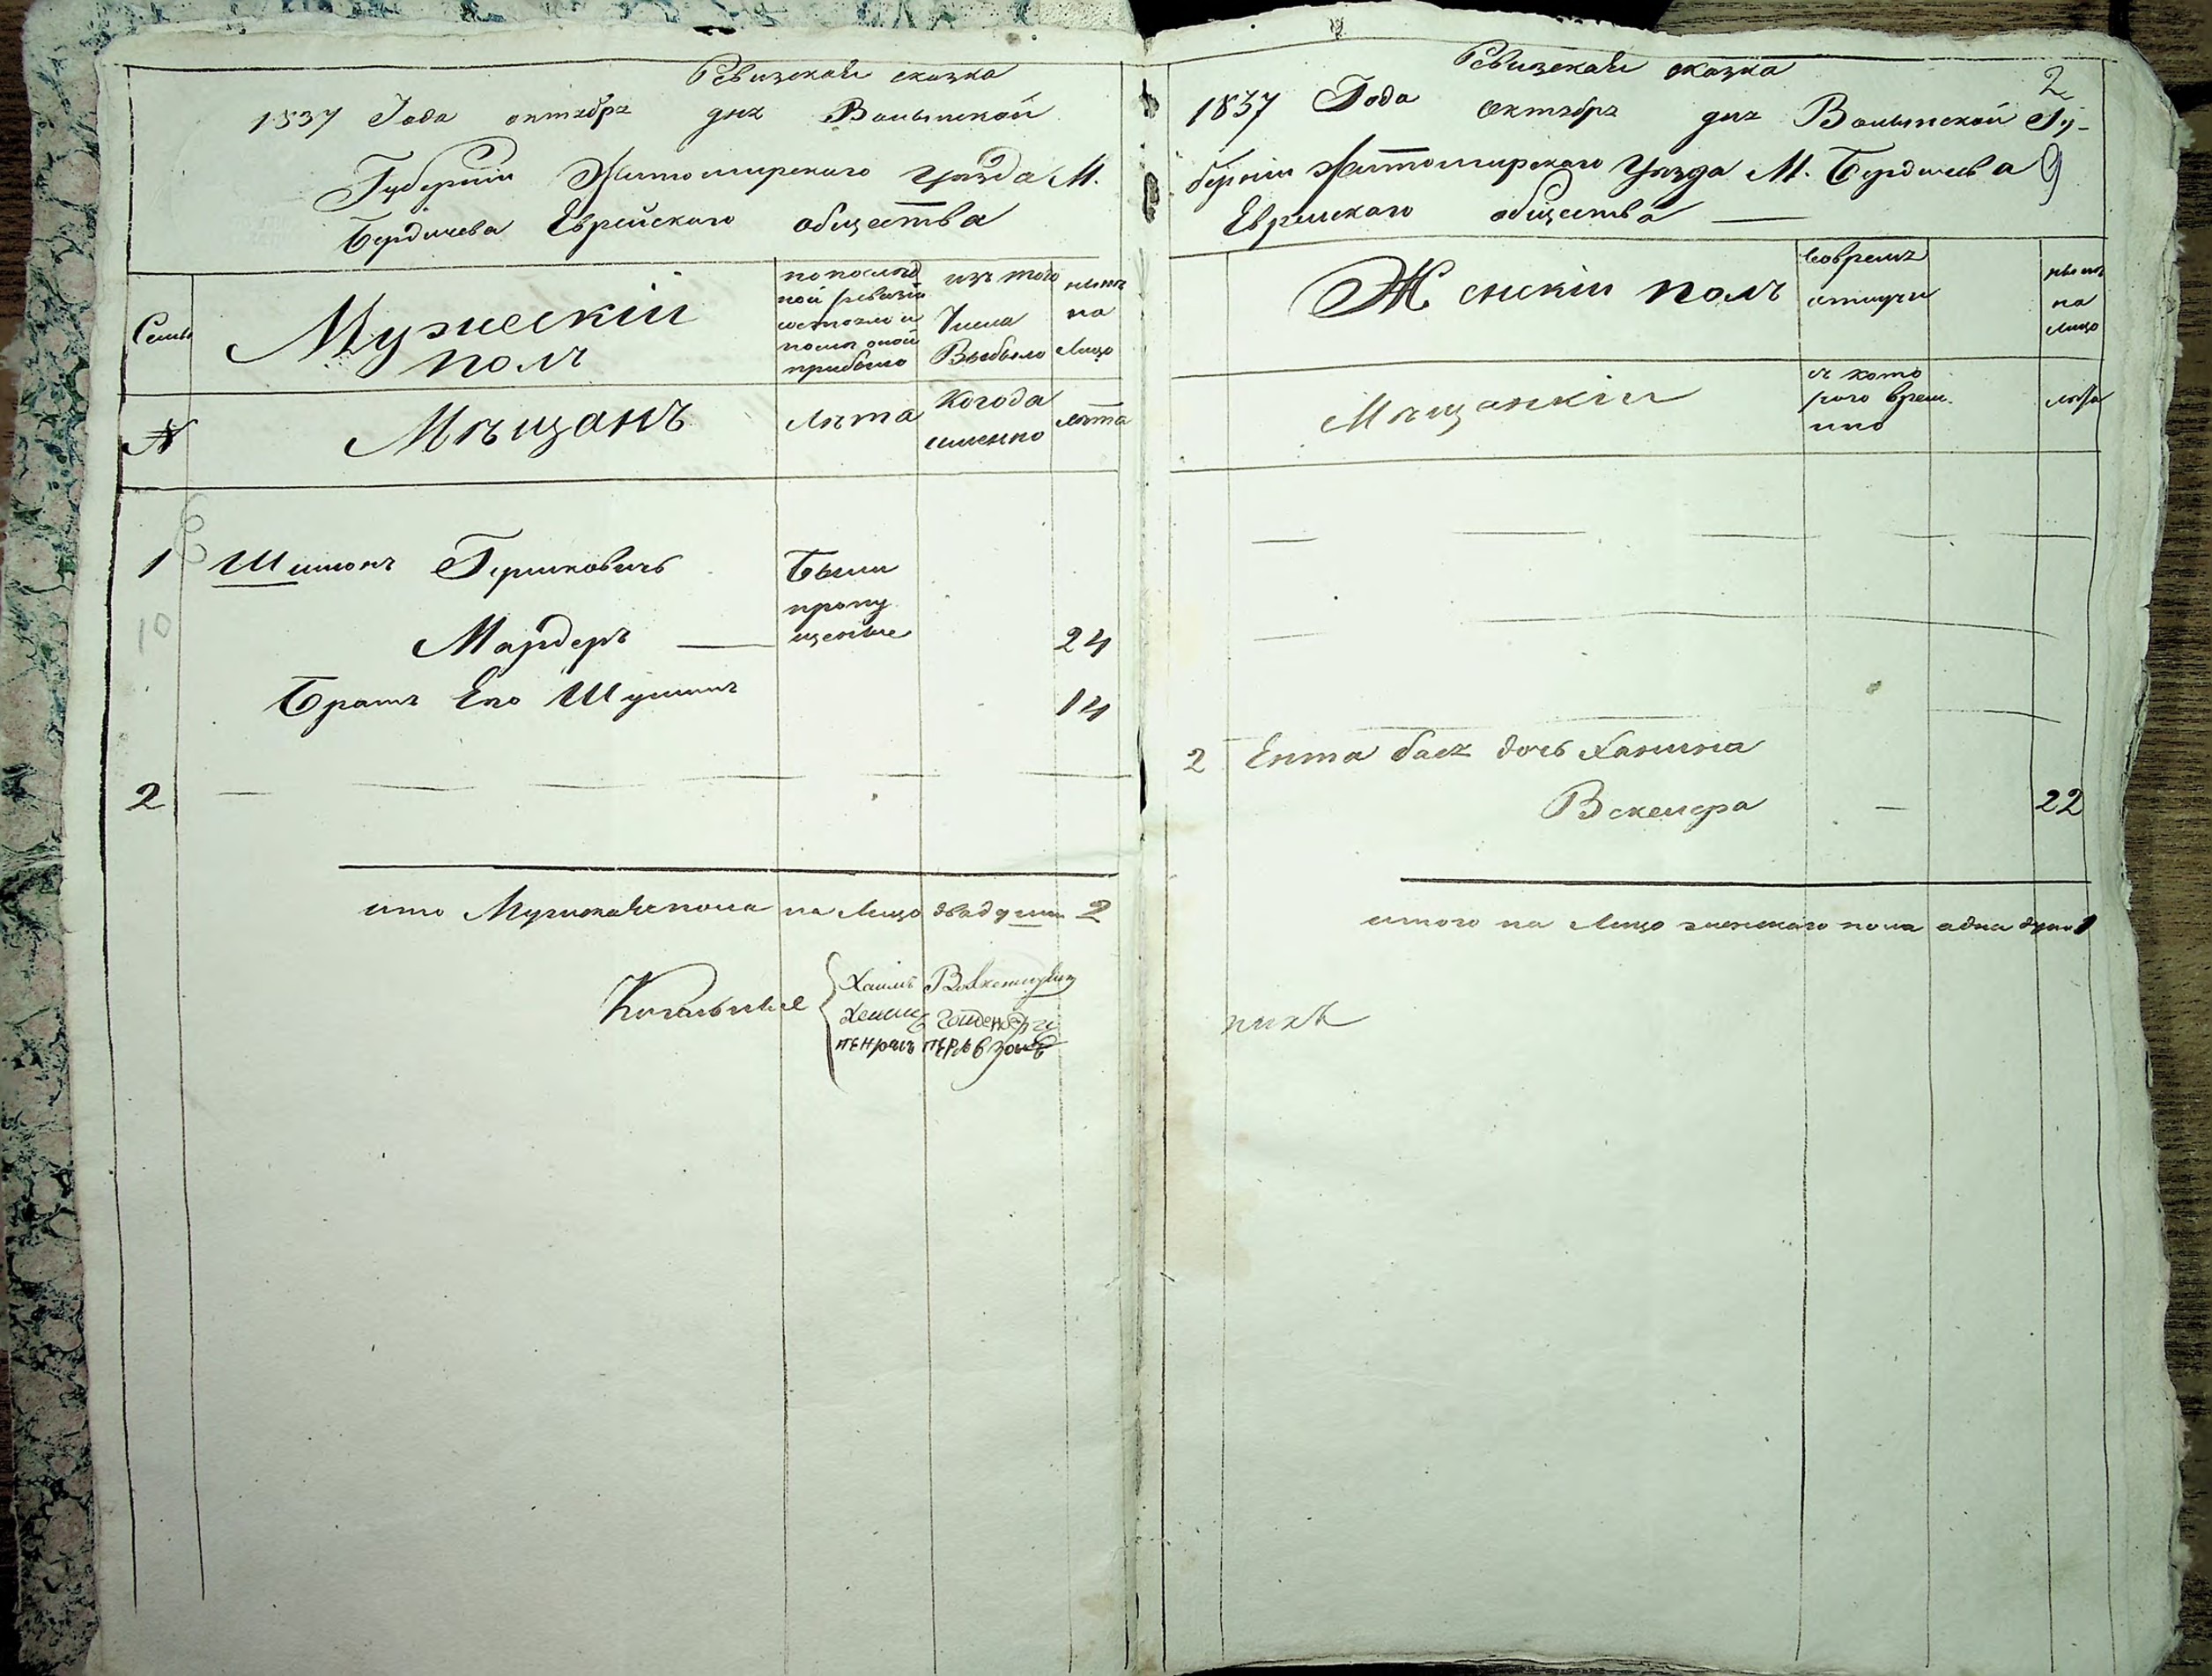 Ревизская сказка
1837 Года октября дня Волынской
Губернии Житомирского уѣзда М.
Бердичева Еврейского общества
Семьи
Мужескій
полъ
по послѣд
ней ревизіи
состояло и
послѣ оной
прибыло
изъ того
Числа
Выбыло
нынѣ
на
Лицо
№
Мѣщанъ
Лѣта
Когода
именно
лѣта
1 Шимонъ Гершковичъ
Были
пропу
щеные
10
Мардеръ — 24
Братъ Его Шулимъ 14
2
ито Мужескаго пола на Лицо двѣ души 2
Кагальные
Хаимъ
2
Ревизская сказка
1837 Года Октября дня Волынской Гу-
берніи Житомирскаго Уѣзда М. Бердичева 9
Еврейскаго общества —
Женскій полъ
во время
отлучки
нынѣ
на
лицо
Мѣщанкіи
съ кото
рого врем.
ино
лѣта
2 Ента бася дочь Ханина
Векслера — 22
итого на Лицо женскаго пола одна душа 1